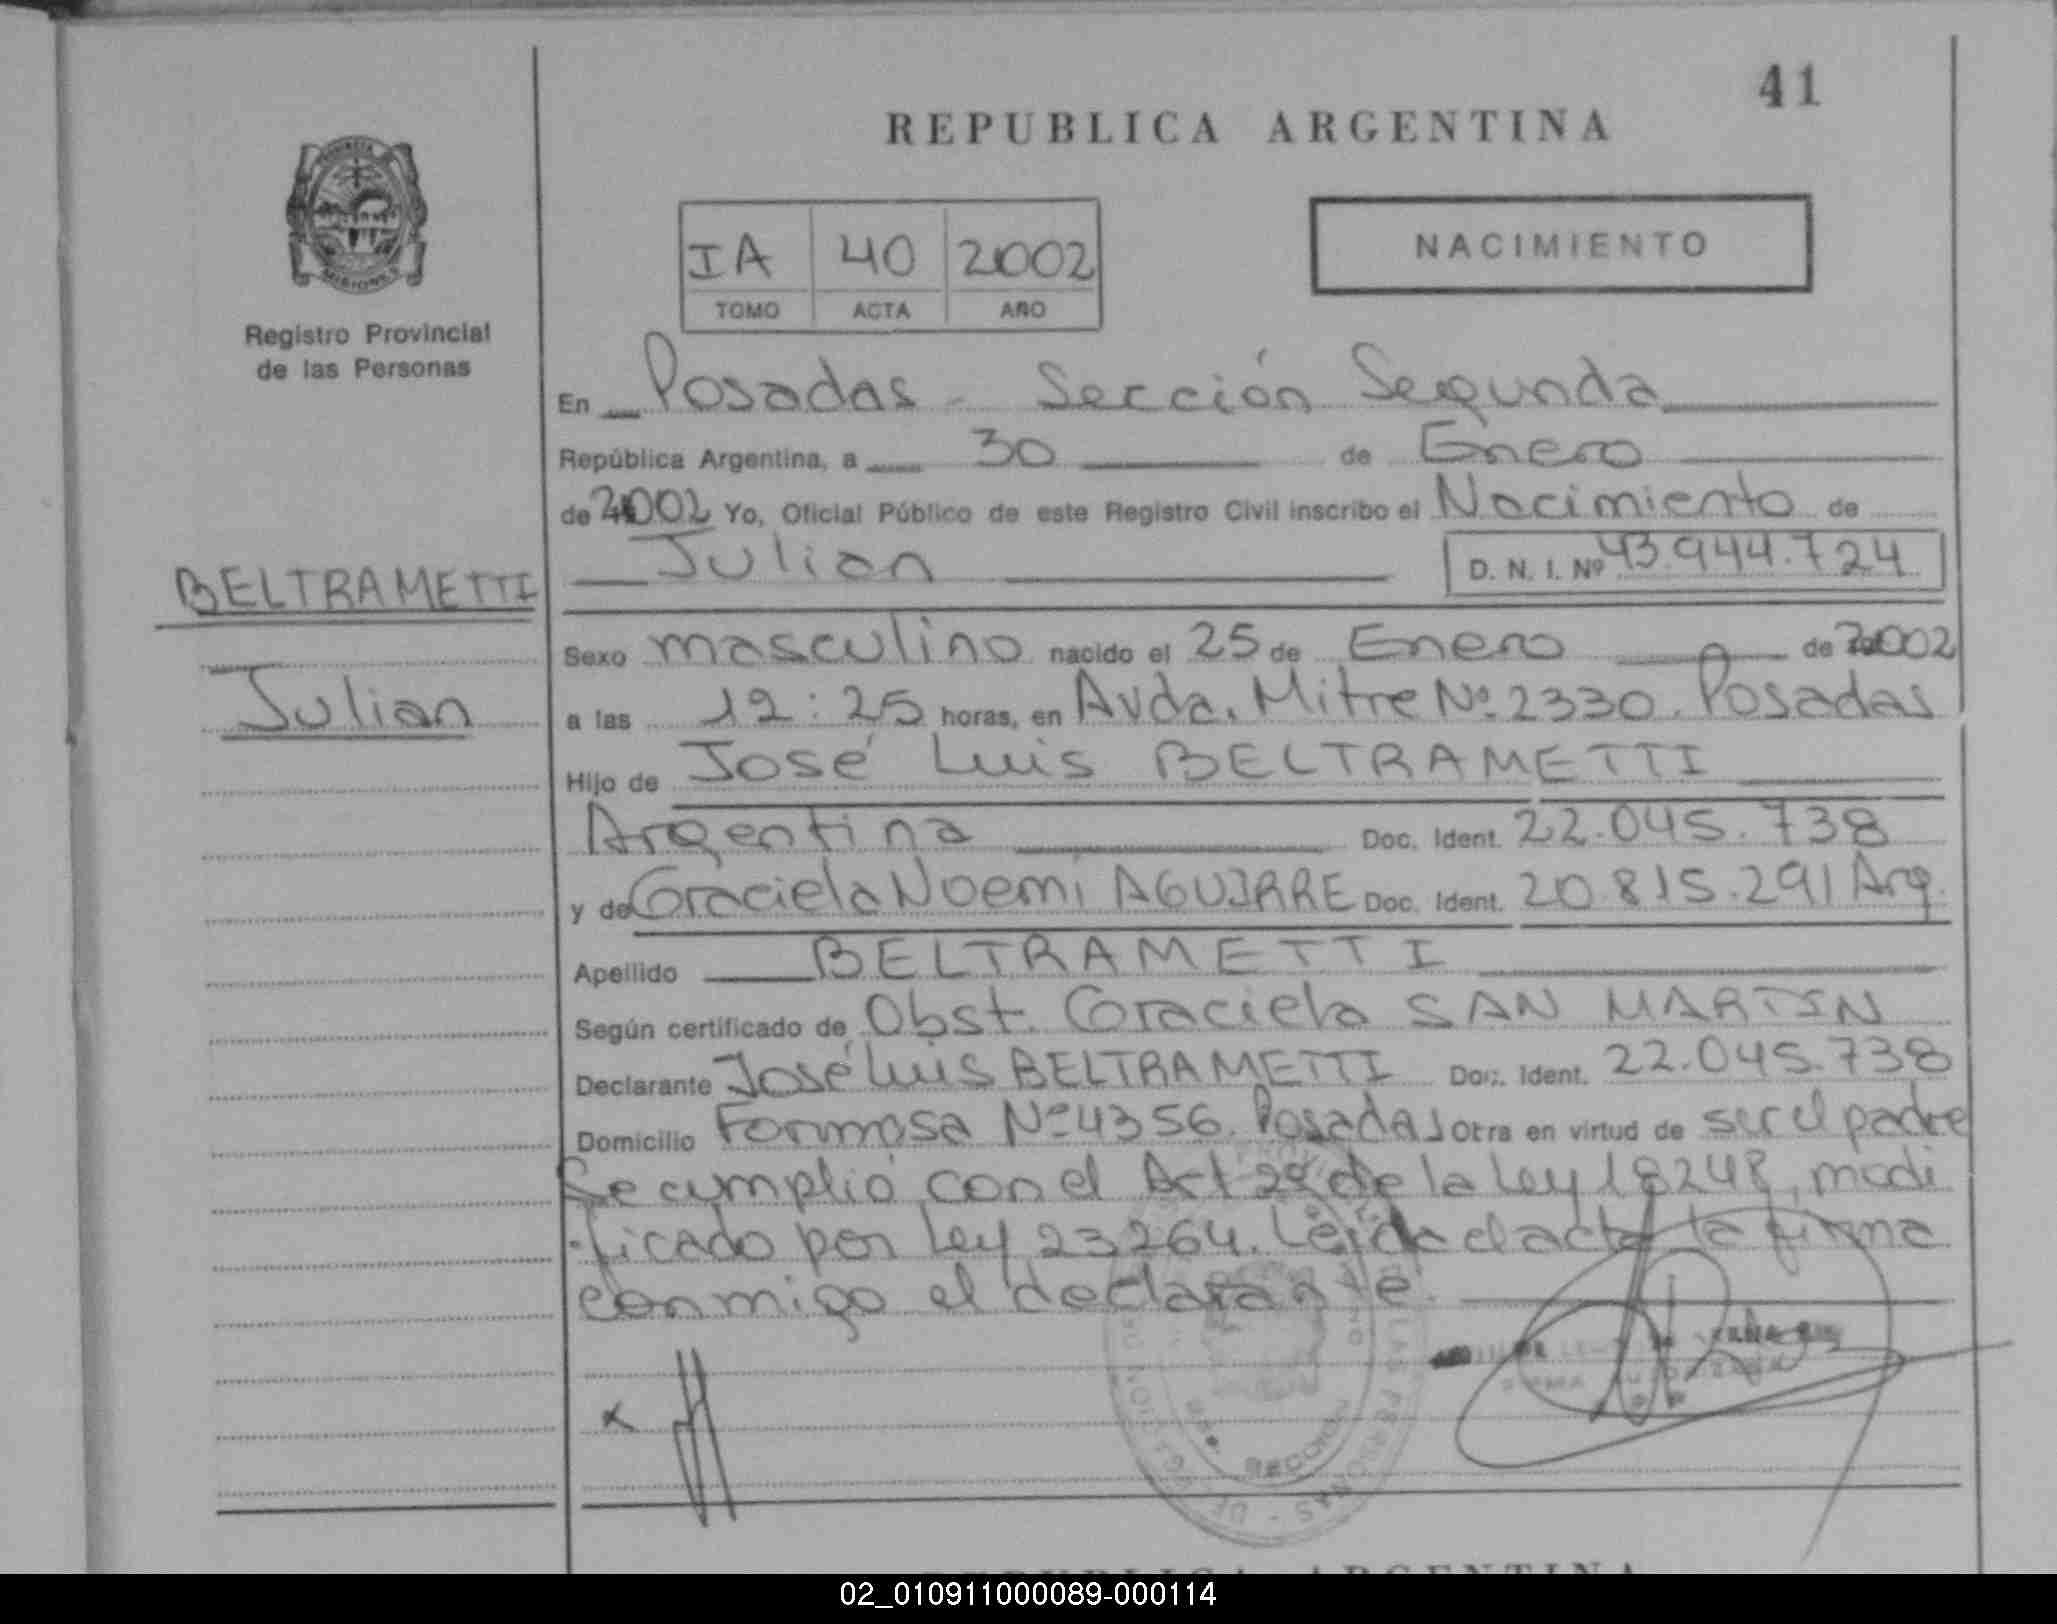 41
REPUBLICA ARGENTINA
PROVINCIA DE
MISIONES
Registro Provincial
de las Personas
IA 40 2002
TOMO ACTA AÑO
NACIMIENTO
En Posadas - Sección Segunda
República Argentina, a 30 de Enero
de 2002 Yo, Oficial Público de este Registro Civil inscribo el Nacimiento de
Julian D. N. I. Nº 43.944.724
BELTRAMETTI
Julian
Sexo masculino nacido el 25 de Enero de 2002
a las 12:25 horas, en Avda. Mitre Nº 2330. Posadas
Hijo de José Luis BELTRAMETTI
Argentina Doc. Ident. 22.045.738
y de Graciela Noemi AGUIRRE Doc. Ident. 20.815.291 Arg.
Apellido BELTRAMETTI
Según certificado de Obst. Graciela SAN MARTIN
Declarante José Luis BELTRAMETTI Doc. Ident. 22.045.738
Domicilio Formosa Nº 4356. Posadas Otra en virtud de ser el padre
Se cumplió con el Art 2º de la Ley 18248, modi
ficado por Ley 23264. Leida el acta la firma
conmigo el declarante.
REPUBLICA ARGENTINA
02_010911000089-000114